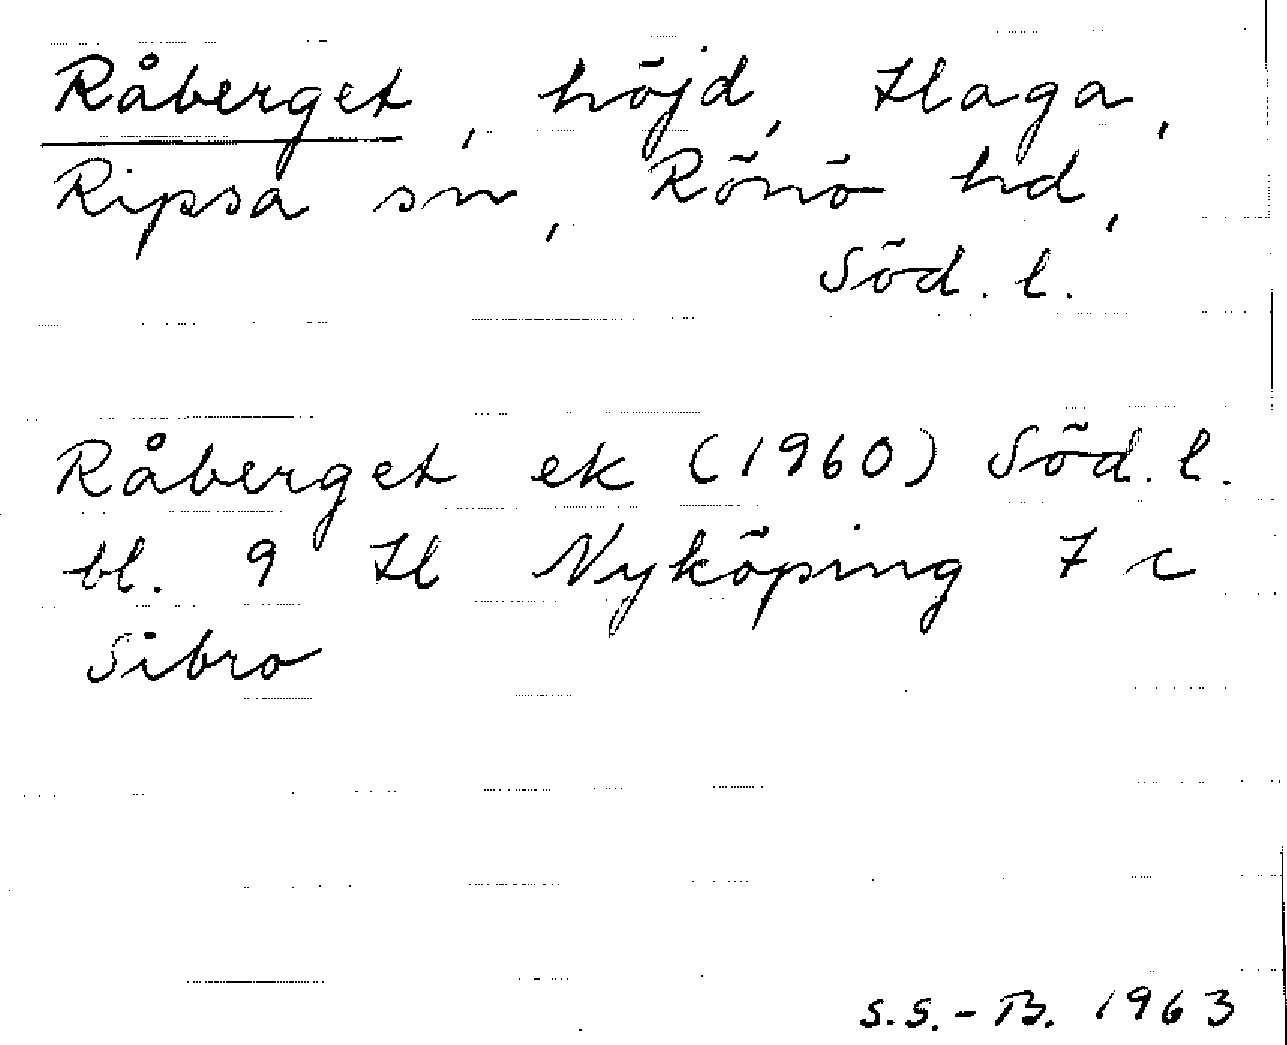 Råberget, höjd, Haga,
Ripsa sn, Rönö hd,
Söd. l.
Råberget ek (1960) Söd. l.
bl. 9 H Nyköping 7 c
Sibro
S.S.-B. 1963